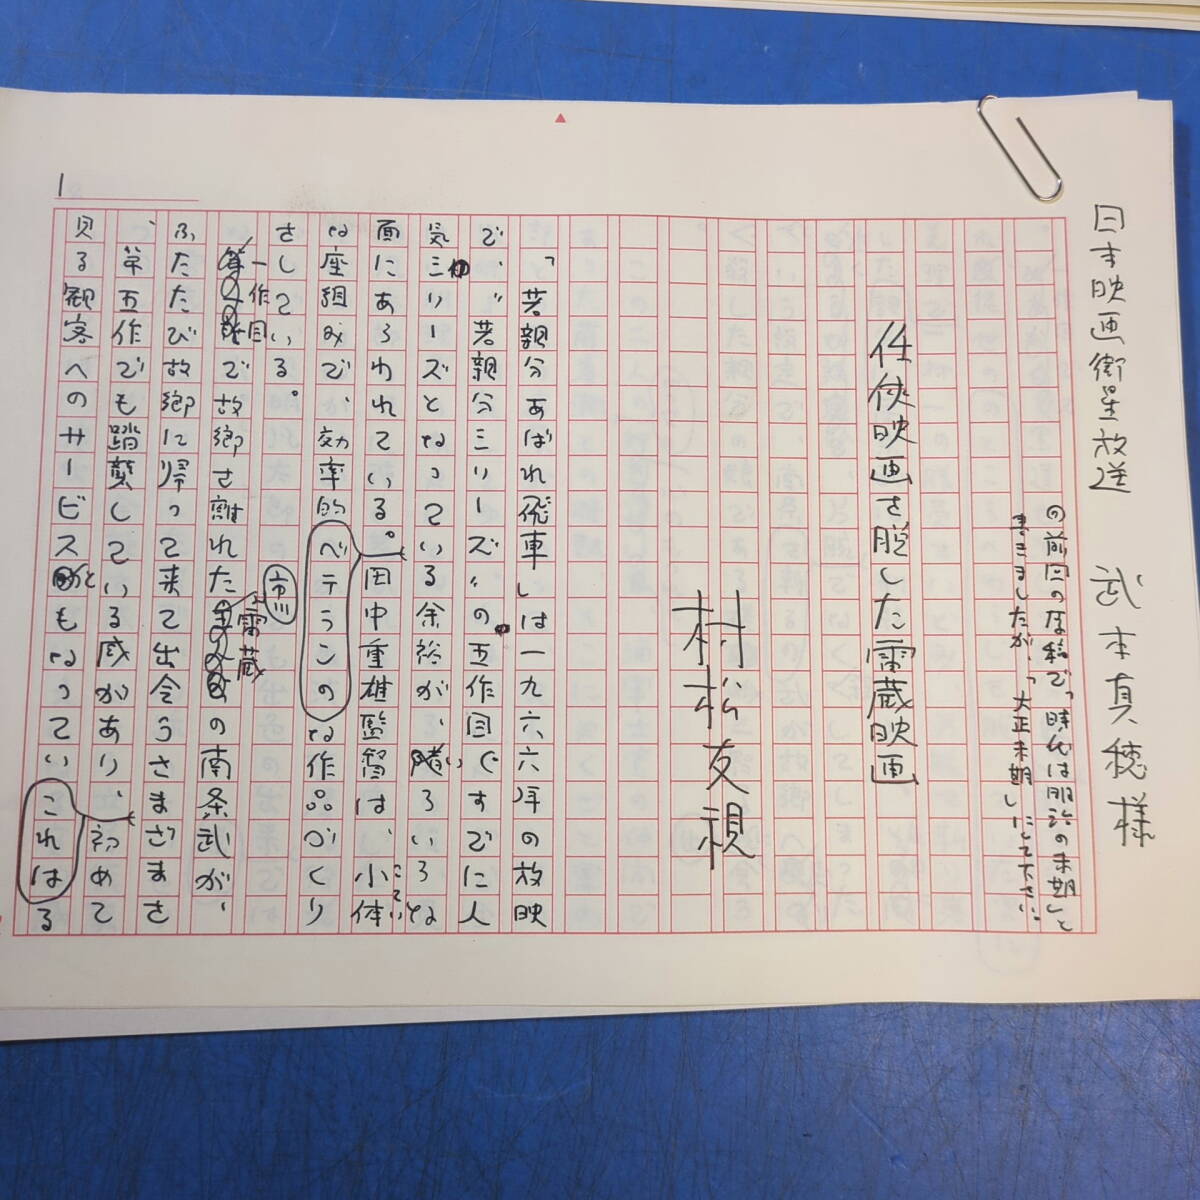 日本映画衛星放送 武本真穂様
◎前回の原稿で、「時代は明治の末期」と
書きましたが、「大正末期」にして下さい。
任侠映画を脱した雷蔵映画
村松友視
「若親分あばれ飛車」は一九六六年の放映
で、〝若親分シリーズ〟の五作目ですでに人
気シリーズとなっている余裕が、いろいろな
面にあらわれている。田中重雄監督は、小体
こてい
な座組みで、効率的なベテランの作品づくり
をしている。
一作目で故郷を離れた市川雷蔵の南条武が、
ふたたび故郷に帰って来て出会うさまざまさ
、第五作でも踏襲している感があり、これは初めて
見る観客へのサービスともなってい
る
1